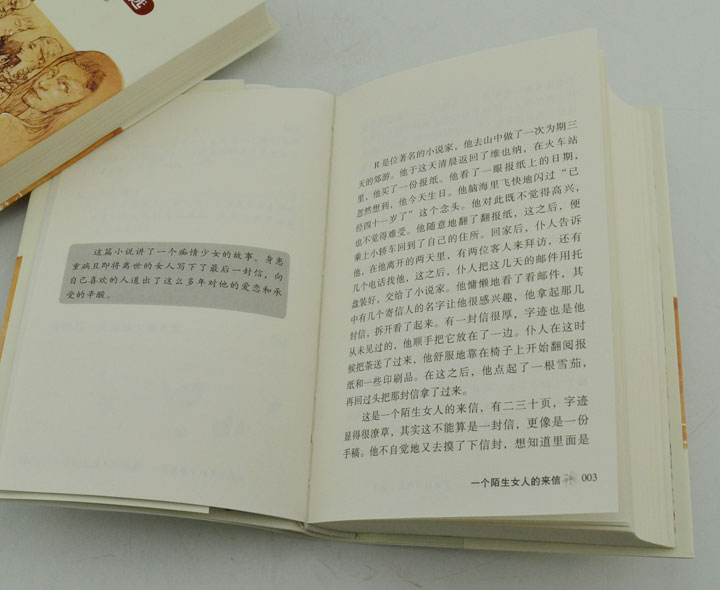 这篇小说讲了一个痴情少女的故事。身患
重病且即将离世的女人写下了最后一封信，向
自己喜欢的人道出了这么多年对他的爱恋和承
受的辛酸。
R 是位著名的小说家，他去山中做了一次为期三
天的郊游。他于这天清晨返回了维也纳，在火车站
里，他买了一份报纸。他看了一眼报纸上的日期，
忽然想到，他今天生日。他脑海里飞快地闪过“已
经四十一岁了”这个念头。他对此既不觉得高兴，
也不觉得难受。他随意地翻了翻报纸，这之后，便
乘上小轿车回到了自己的住所。回家后，仆人告诉
他，在他离开的两天里，有两位客人来拜访，还有
几个电话找他，这之后，仆人把这几天的邮件用托
盘装好，交给了小说家。他慵懒地看了看邮件，其
中有几个寄信人的名字让他很感兴趣，他拿起那几
封信，拆开看了起来。有一封信很厚，字迹也是他
从未见过的，他顺手把它放在了一边。仆人在这时
候把茶送了过来，他舒服地靠在椅子上开始翻阅报
纸和一些印刷品。在这之后，他点起了一根雪茄，
再回过头把那封信拿了过来。
这是一个陌生女人的来信，有二三十页，字迹
显得很潦草，其实这不能算是一封信，更像是一份
手稿。他不自觉地又去摸了下信封，想知道里面是
一个陌生女人的来信 003